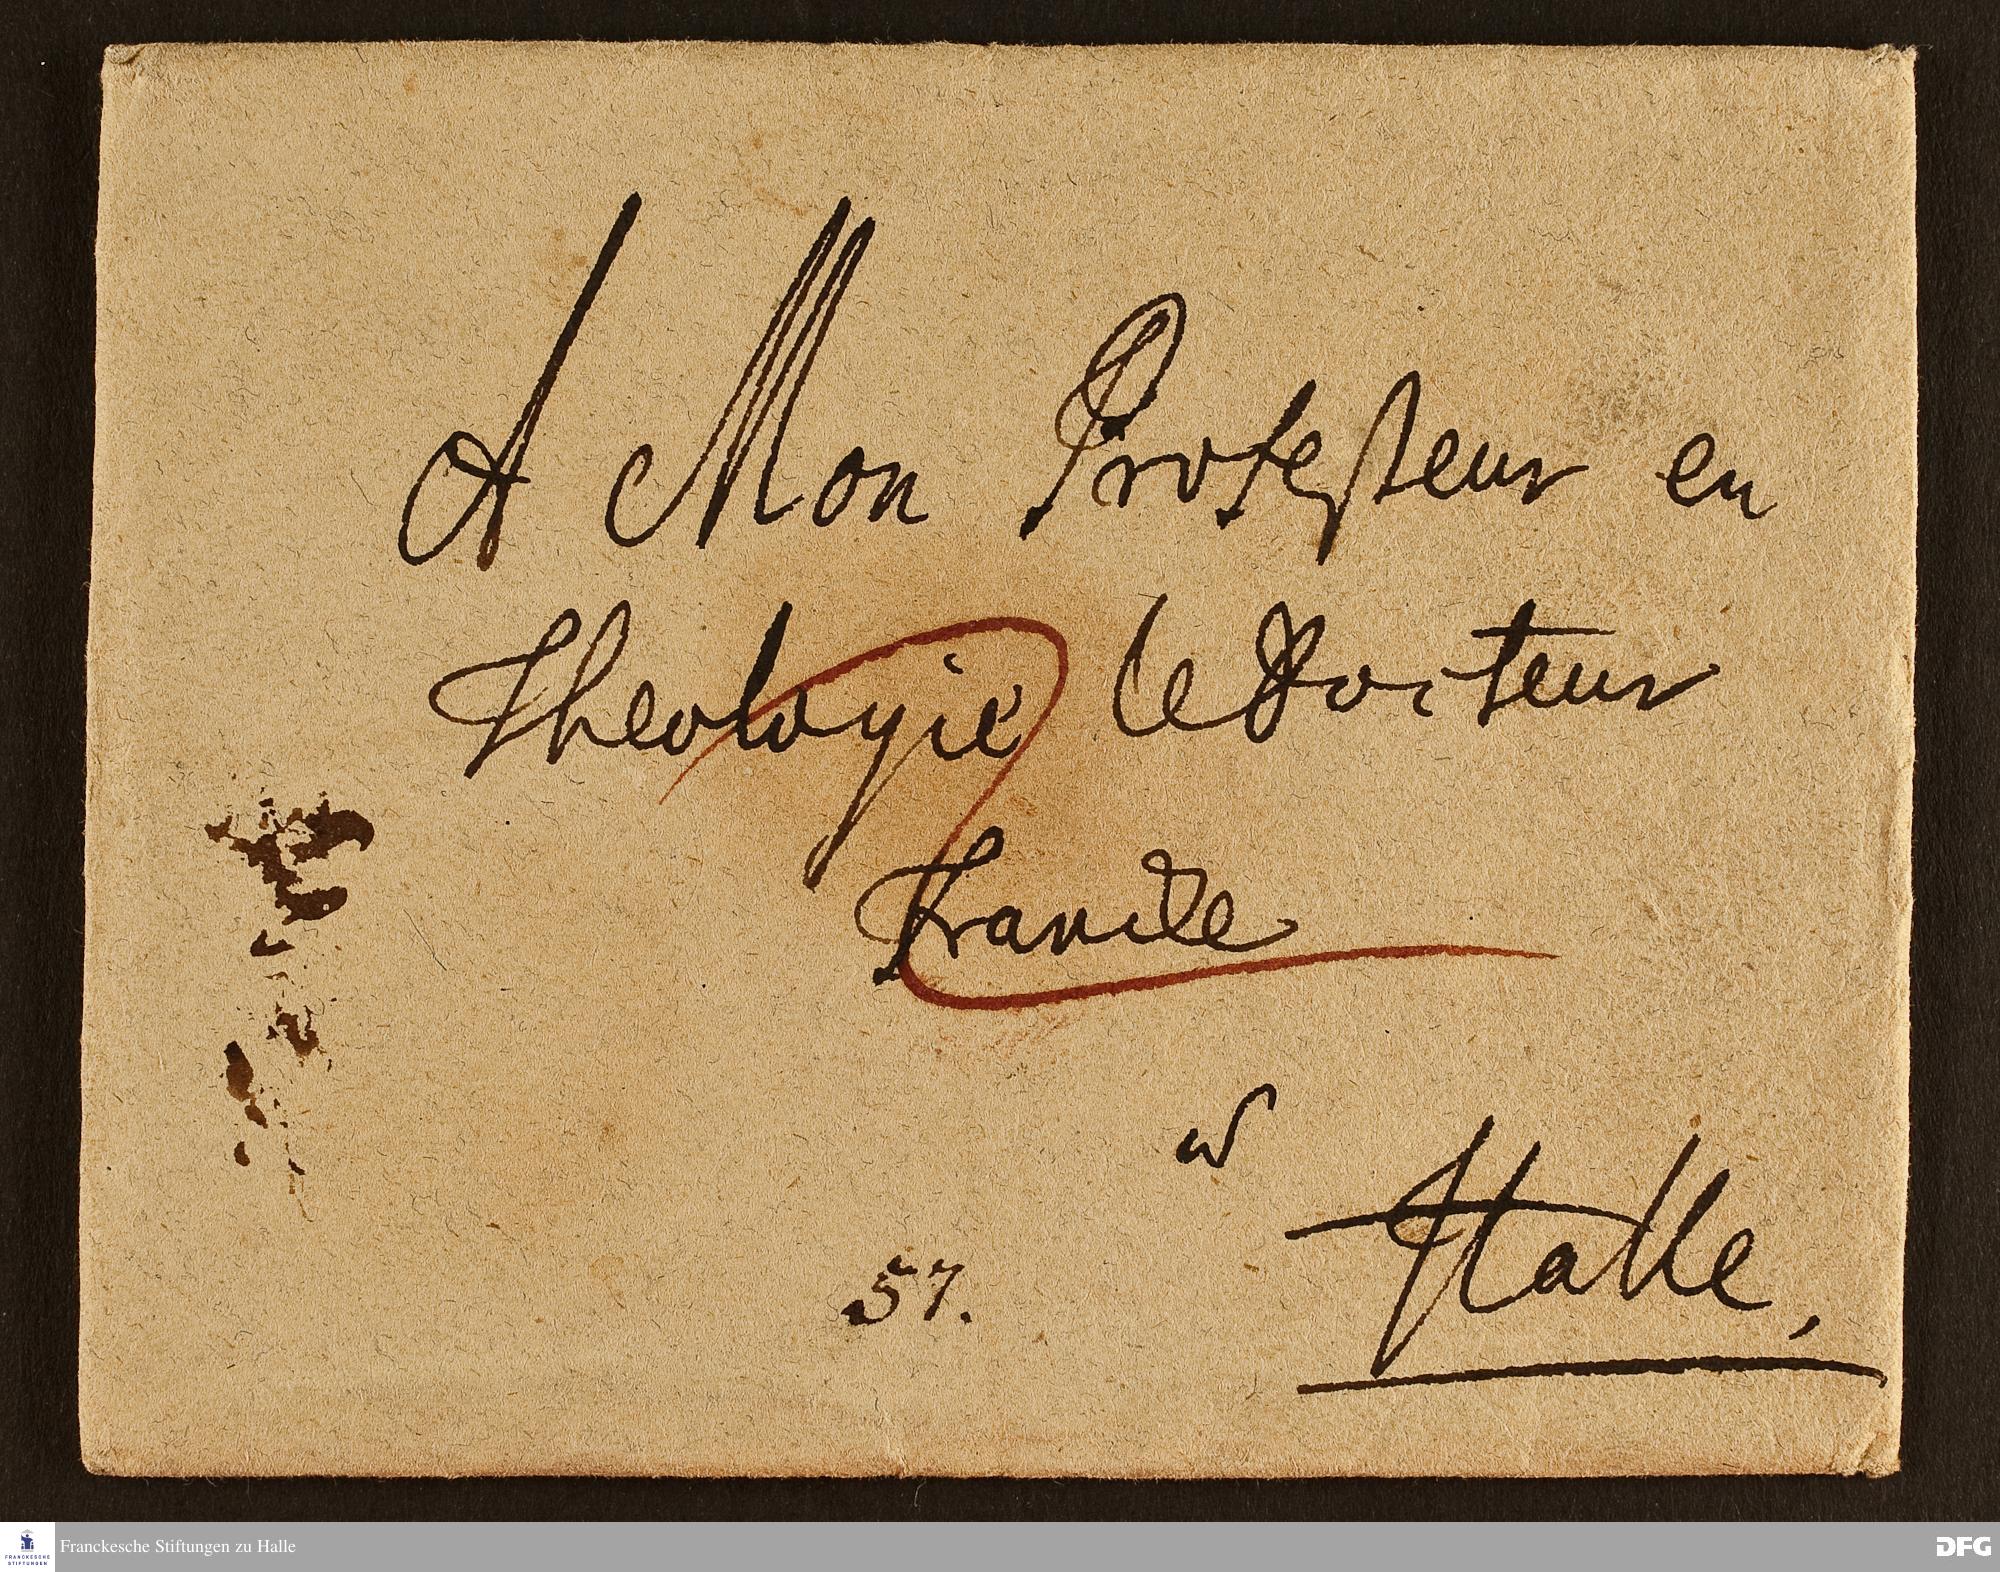 A Mon Professeur en
Theologie le Docteur
Francke
a
Halle,
57.
Franckesche Stiftungen zu Halle
FRANCKESCHE
STIFTUNGEN
DFG